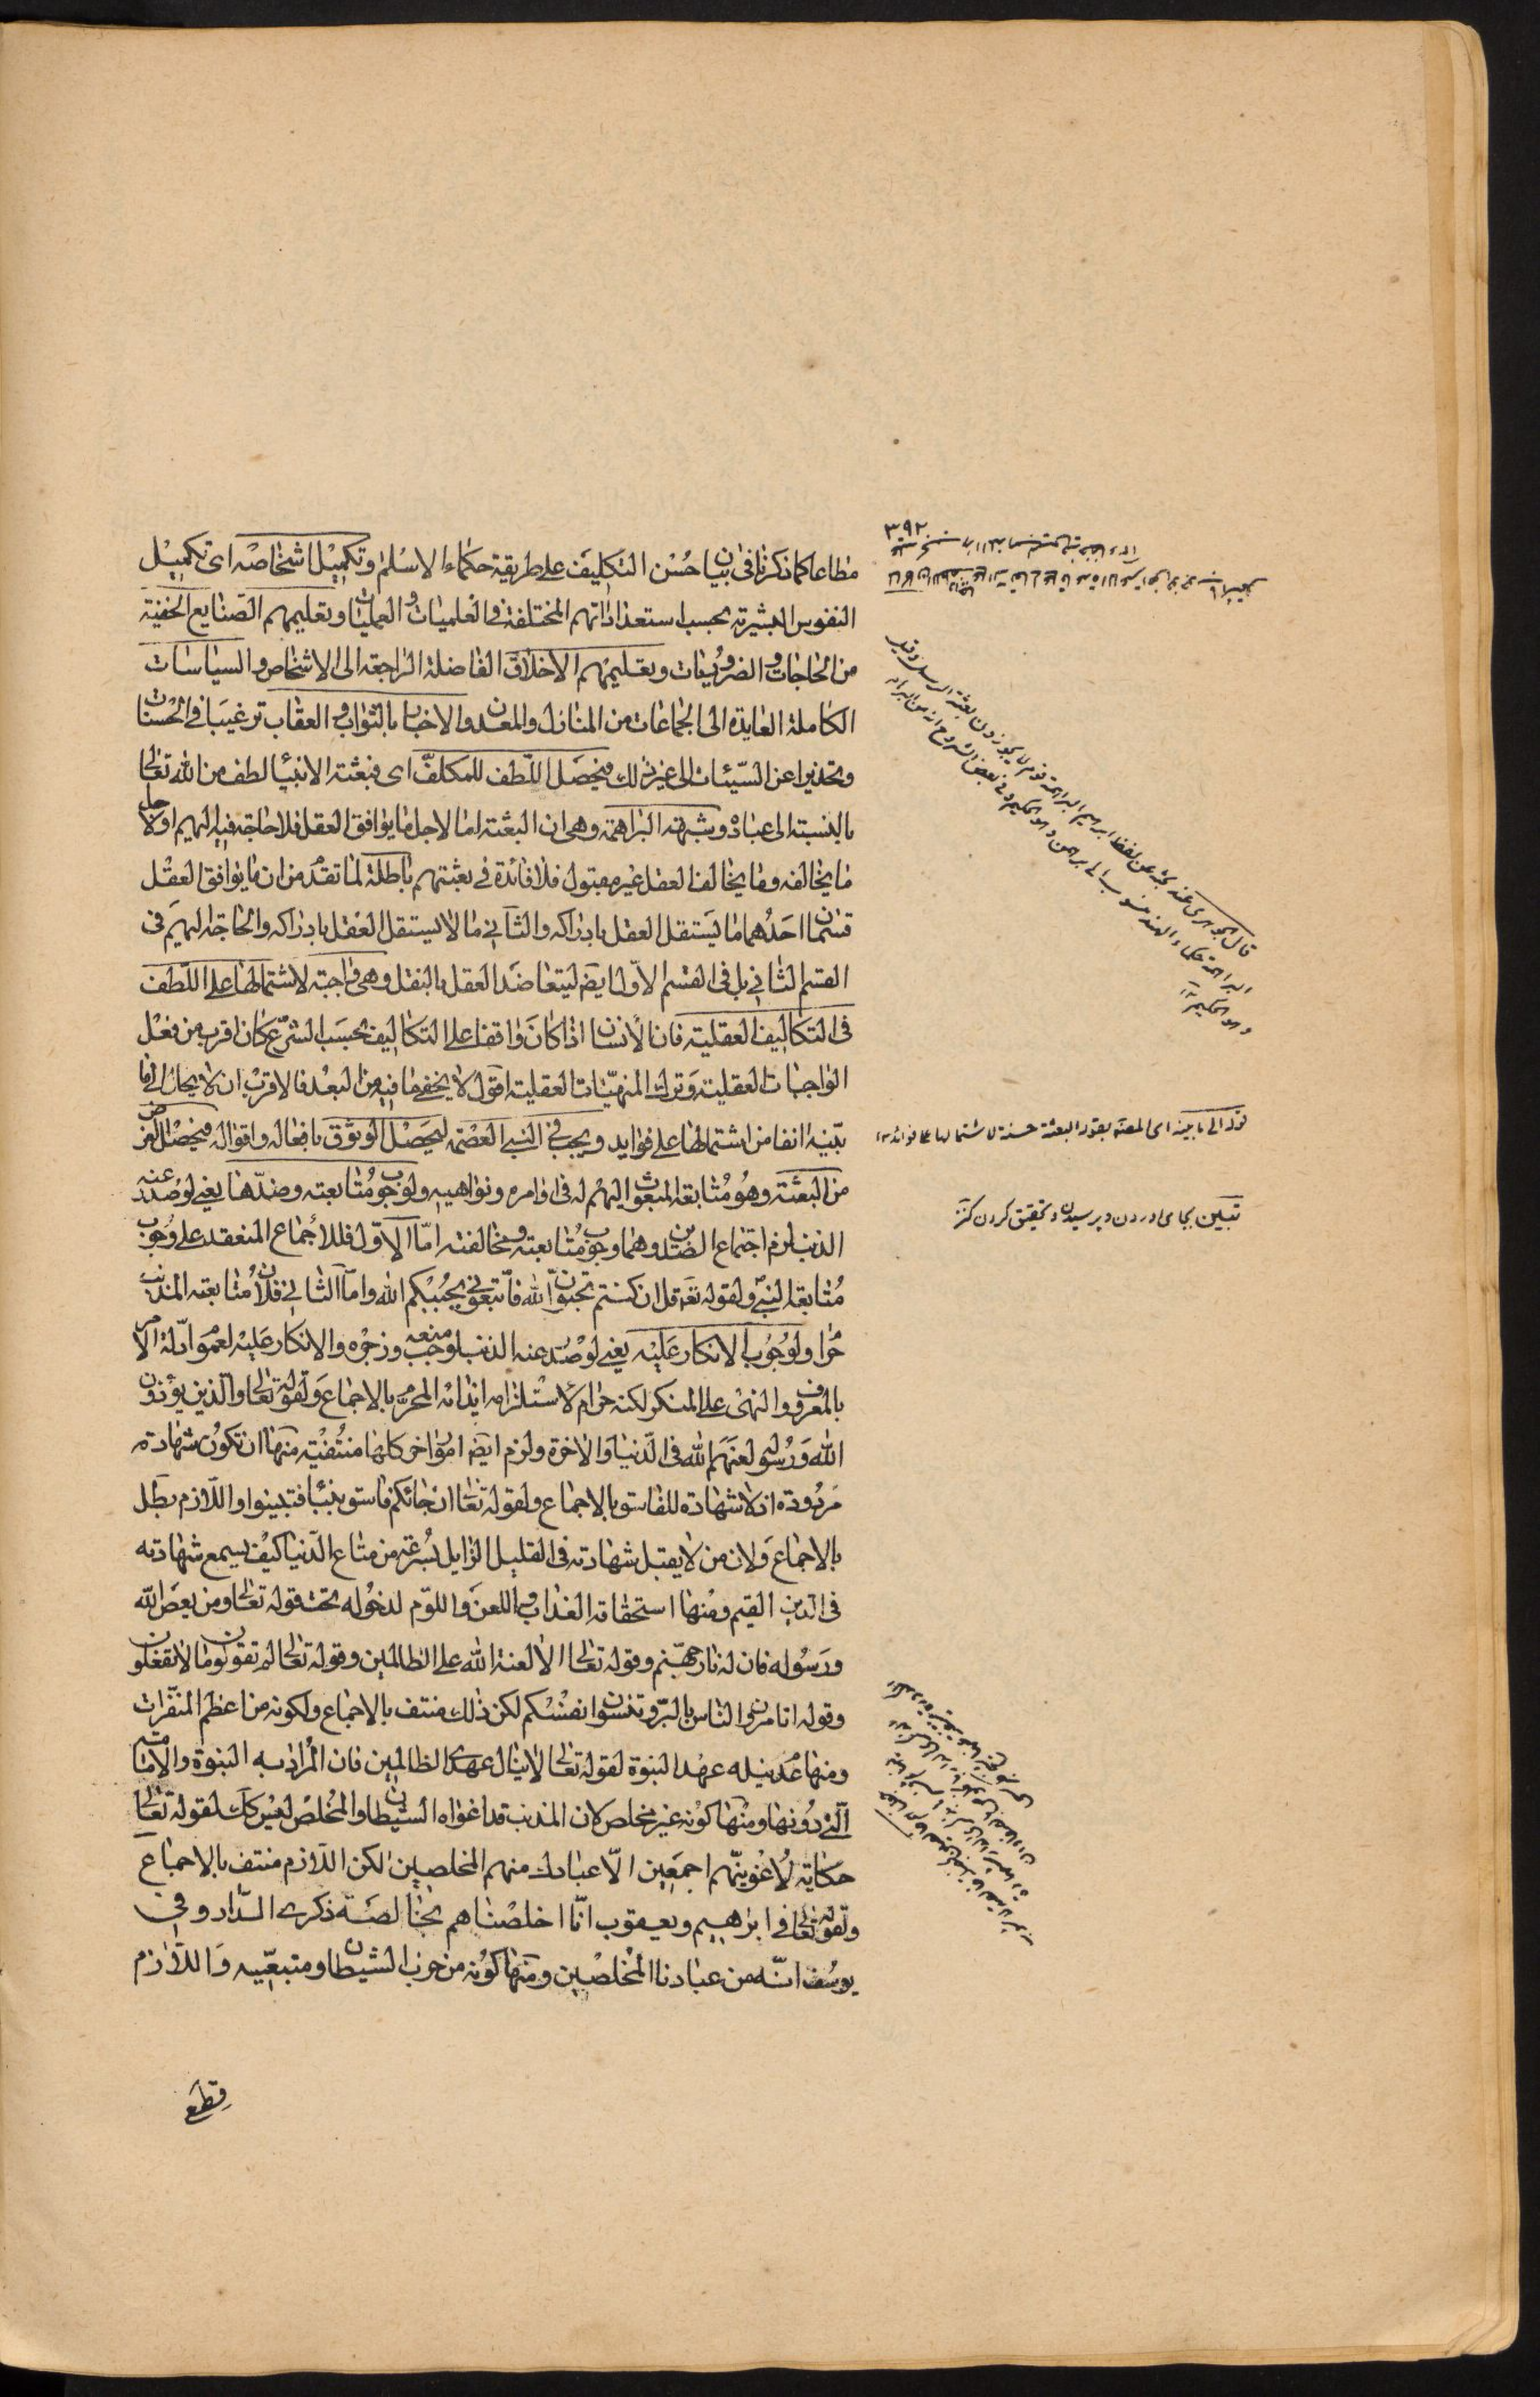 ٣٩٢
مطاعا كما ذكرنا فى بيان حسن التكليف على طريقة حكماء الاسلام وتكميل اشخاصه اى تكميل
النفوس البشرية بحسب استعداداتهم المختلفة فى العلميات والعمليات وتعليمهم الصنايع الخفية
من الحاجات والضروريات وتعليمهم الاخلاق الفاضلة الراجعة الى الاشخاص والسياسات
الكاملة العايدة الى الجماعات من المنازل والمدن والاخبار بالثواب والعقاب ترغيبا فى الحسنات
وتحذيرا عن السيئات الى غير ذلك فيحصل اللطف للمكلف اى فبعثة الانبيا لطف من الله تعالى
بالنسبة الى عباده وشبهة البراهمة وهى ان البعثة اما لاجل ما يوافق العقل فلا حاجة فيه اليهم او لاجل
ما يخالفه وما يخالف العقل غير مقبول فلا فائدة فى بعثتهم باطلة لما تقدم من ان ما يوافق العقل
قسمان احدهما ما يستقل العقل بادراكه والثانى ما لا يستقل العقل بادراكه والحاجة اليهم فى
القسم الثانى بل فى القسم الاول ايضا ليتعاضد العقل بالنقل وهى واجبة لاشتمالها على اللطف
فى التكاليف العقلية فان الانسان اذا كان واقفا على التكاليف بحسب الشرع كان اقرب من فعل
الواجبات العقلية وترك المنهيات العقلية اقول لا يخفى ما فيه من البعد فالاقرب ان لا يحال الى ما
بينه انفا من اشتمالها على فوايد ويجب فى النبى العصمة ليحصل الوثوق بافعاله واقواله فيحصل الغرض
من البعثة وهو متابعة المبعوث اليهم له فى اوامره ونواهيه ولوجوب متابعته وضدها يعنى لو صدر عنه
الذنب لزم اجتماع الضدين وهما وجوب متابعته ومخالفته اما الاول فللاجماع المنعقد على وجوب
متابعة النبى ولقوله تع قل ان كنتم تحبون الله فاتبعونى يحببكم الله واما الثانى فلان متابعة المذنب
حرام ولوجوب الانكار عليه يعنى لو صدر عنه الذنب لوجب منعه وزجره والانكار عليه لعموم ادلة الامر
بالمعروف والنهى على المنكر لكنه حرام لاستلزامه ايذائه المحرم بالاجماع ولقوله تعالى والذين يؤذون
الله ورسوله لعنهم الله فى الدنيا والاخرة ولزم ايضا امور اخر كلها منتفية منها ان تكون شهادته
مردودة اذ لا شهادة للفاسق بالاجماع ولقوله تعالى ان جائكم فاسق بنبأ فتبينوا واللازم بطل
بالاجماع ولان من لا يقبل شهادته فى القليل الزايل بسرعة من متاع الدنيا كيف يسمع شهادته
فى الدين القيم ومنها استحقاقه العذاب واللعن واللوم لدخوله تحت قوله تعالى ومن يعص الله
ورسوله فان له نار جهنم وقوله تعالى الا لعنة الله على الظالمين وقوله تعالى لم تقولون ما لا تفعلون
وقوله اتامرون الناس بالبر وتنسون انفسكم لكن ذلك منتف بالاجماع ولكونه من اعظم المنفرات
ومنها عدم نيله عهد النبوة لقوله تعالى لا ينال عهدى الظالمين فان المراد به النبوة والامامة
التى دونها ومنها كونه غير مخلص لان المذنب قد اغواه الشيطان والمخلص ليس كك لقوله تعالى
حكاية لاغوينهم اجمعين الا عبادك منهم المخلصين لكن اللازم منتف بالاجماع
ولقوله تعالى فى ابرهيم ويعقوب انا اخلصناهم بخالصة ذكرى الدار وفى
يوسف انه من عبادنا المخلصين ومنها كونه من حزب الشيطان ومتبعيه واللازم
قطع
قوله الى ما بينه اى المصنف بقوله البعثة حسنة لاشتمالها على فوائد ١٢
تبيين بجاى اوردن وپرسيدن وتحقيق كردن كنز